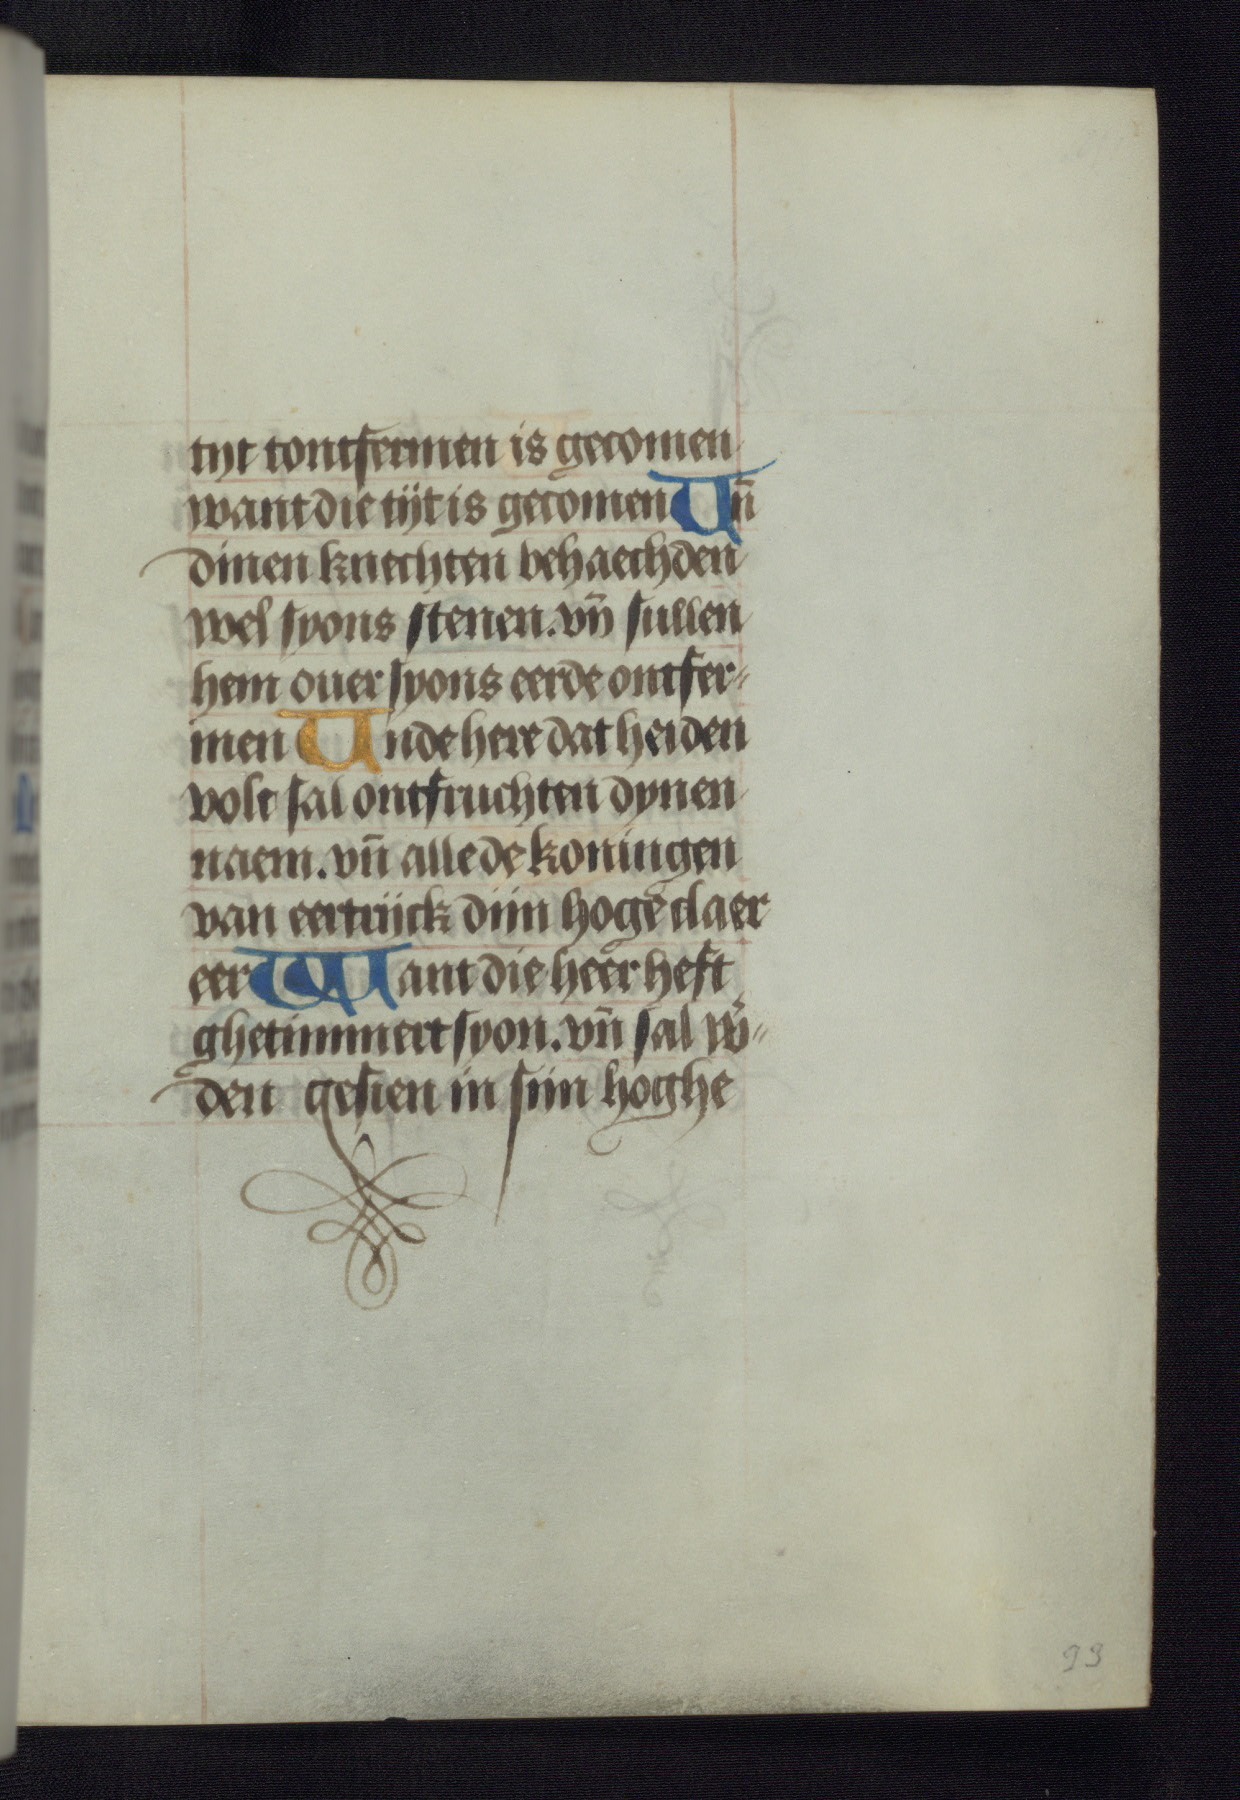 tyt tontfermen is gecomen
want die tijt is gecomen Vn̄
dinen knechten behaechden
wel syons stenen. vn̄ sullen
hem ouer syons eerde ontfer-
men Unde here dat heiden
volc sal ontfruchten dynen
naem. vn̄ alle de koningen
van eertrijck dijn hogē claer
eer Want die heer heft
ghetimmert syon. vn̄ sal w̄-
den gesien in sijn hoghe
93